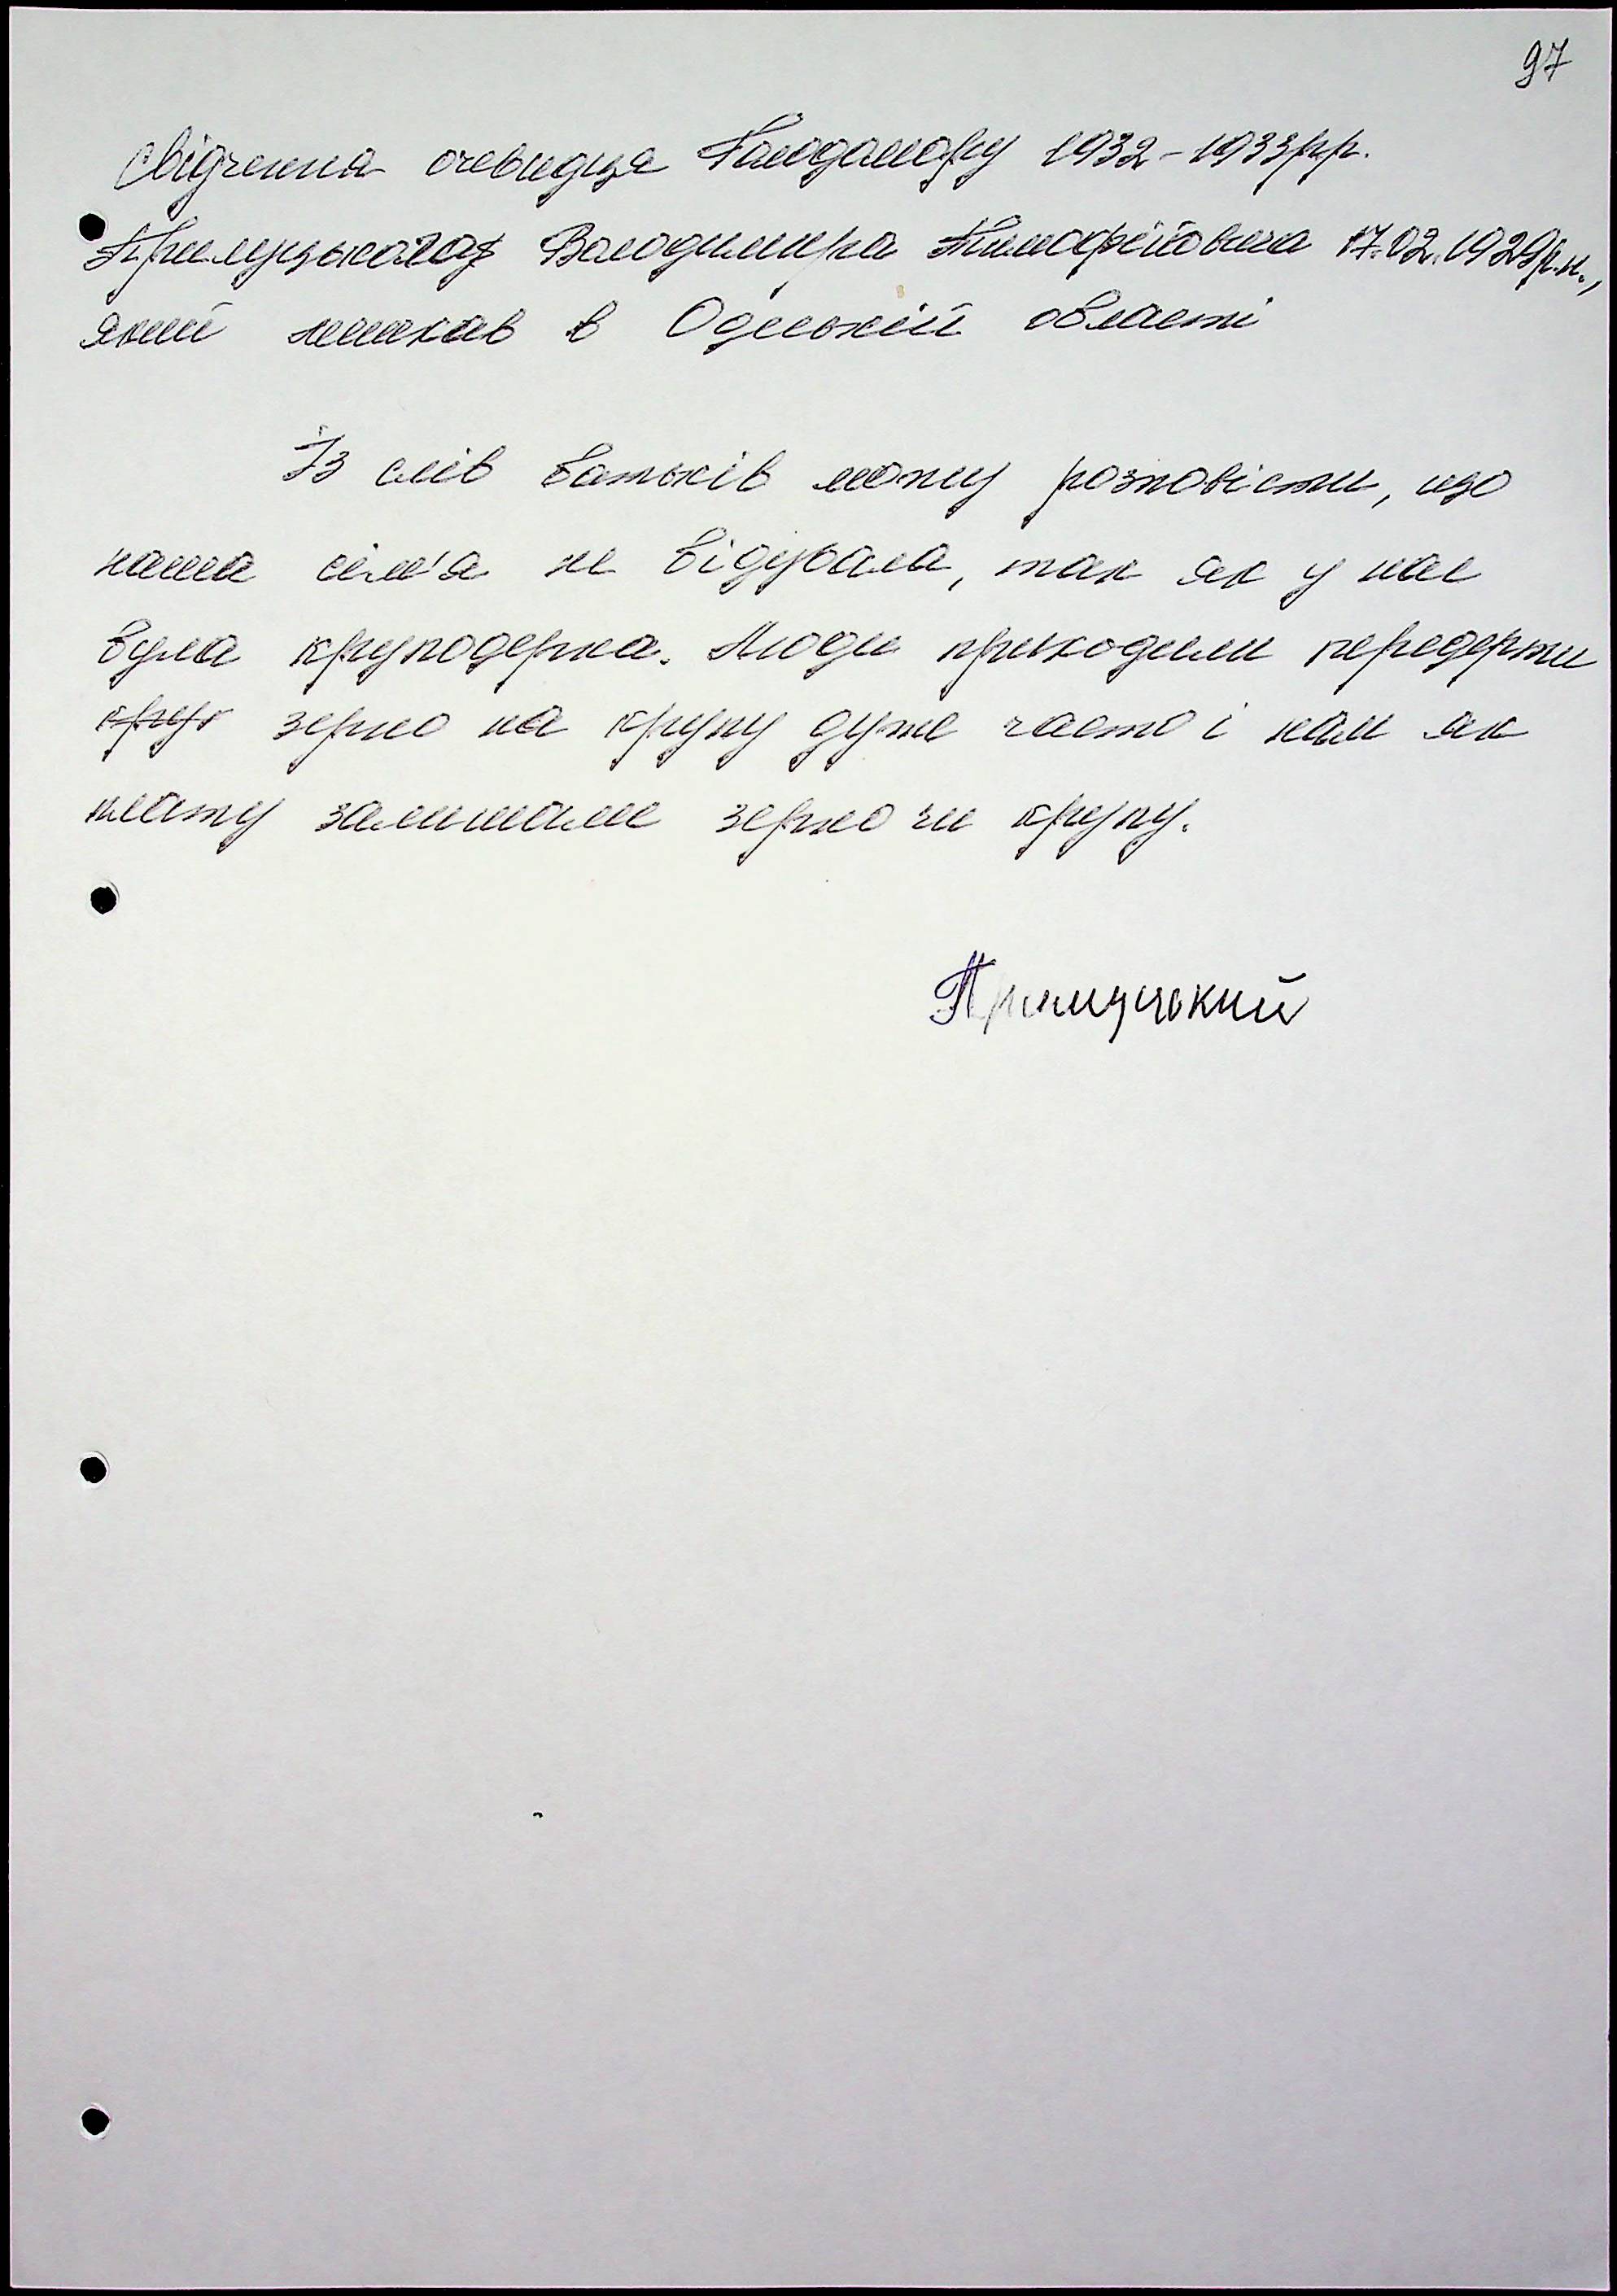 97
Свідчення очевидця Голодомору 1932-1933рр.
Прилуцького Володимира Тимофійовича 17.02.1929р.н.,
який мешкав в Одеській області
Із слів батьків можу розповісти, що
наша сім'я не бідувала, так як у нас
була круподерка. Люди приходили передерти
круп зерно на крупу дуже часто і нам як
плату залишали зерно чи крупу.
Прилуцький